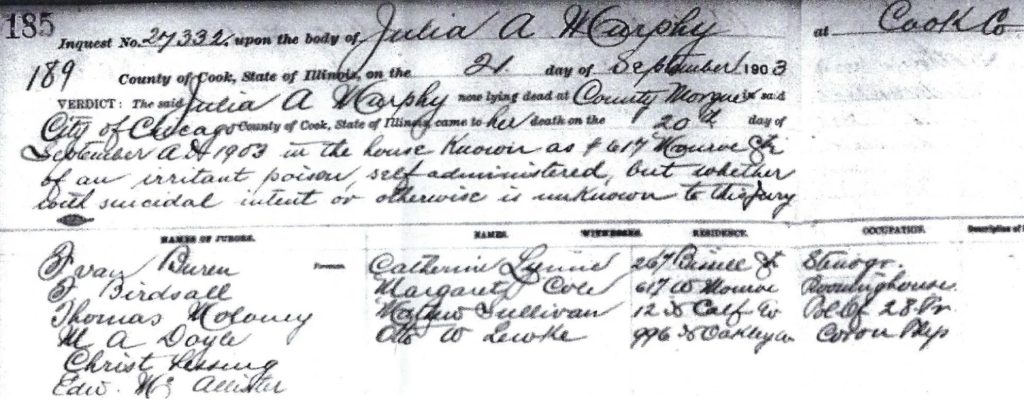 185
Inquest No. 27332, upon the body of Julia A Murphy at Cook Co
189 County of Cook, State of Illinois, on the 21 day of September 1903
VERDICT: The said Julia A Murphy now lying dead at County Morgue in said
City of Chicago County of Cook, State of Illinois, came to her death on the 20th day of
September A D 1903 in the house Known as # 617 Monroe St
of an irritant poison, self administered, but whether
with suicidal intent or otherwise is unknown to this Jury
NAMES OF JURORS. NAMES. WITNESSES. RESIDENCE. OCCUPATION. Description of
F van Buren Foreman. Catherine 267 St Stenogr.
F Birdsall Margaret Cole 617 W Monroe Roominghouse
Thomas Moloney Sullivan 12 Calf Av Pol Of 28 Pr
M A Doyle Otto W Lewke 996 N Oakley av Coron Phys
Christ
Edw. Mc Allister